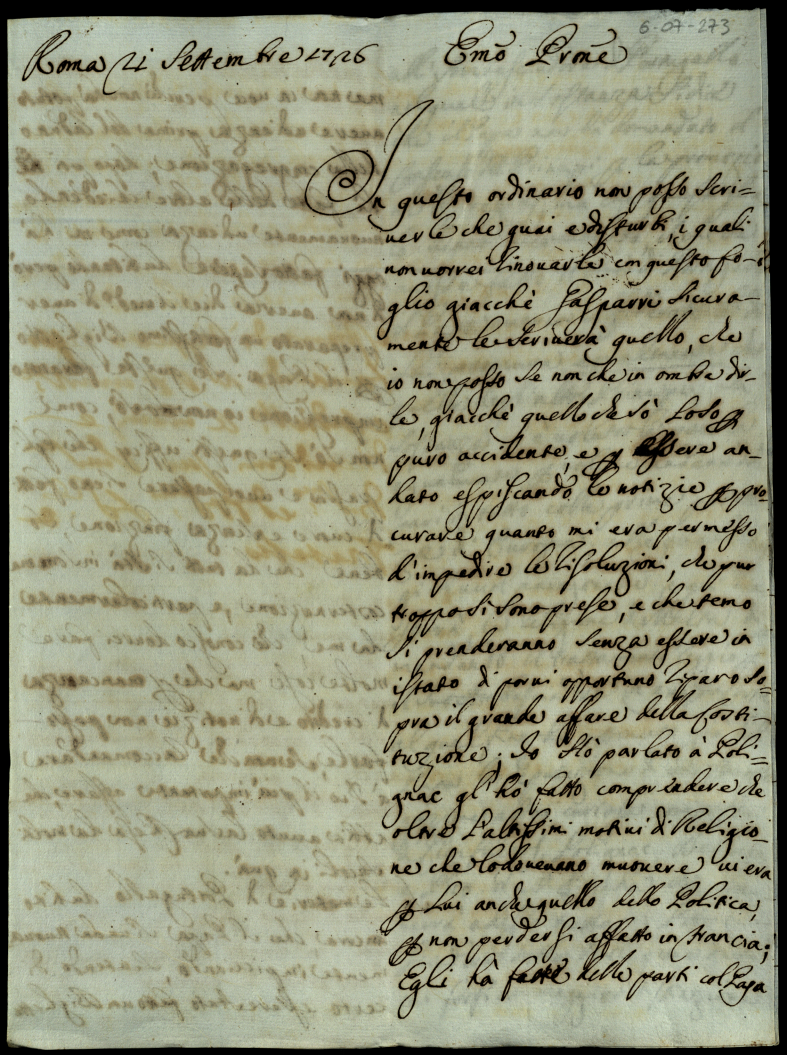 6-07-273
Roma 21 Settembre 1726 Emo Prone
In questo ordinario non posso scri=
uerle che guai e disturbi, i quali
non uorrei rinouarle in questo fo=
glio giacchè Gasparri sicura=
mente le scriuerà quello, che
io non posso se non che in ombre dir=
le, giacchè quello che sò lo so p
puro accidente, e p essere an=
dato espiscando le notizie p pro=
curare quanto mi era permesso
d'impedire le risoluzioni, che pur
troppo si sono prese, e che temo
si prenderanno senza essere in
istato di porui opportuno riparo so=
pra il grande affare della Costi=
tuzione; Io hò parlato à Poli=
gnac gl'hò fatto comprendere che
oltre l'altissimi motiui di Religio=
ne che lo doueuano muouere ui era
p Lui anche quello della Politica,
p non perdersi affatto in Francia;
Egli hà fatte delle parti col Papa